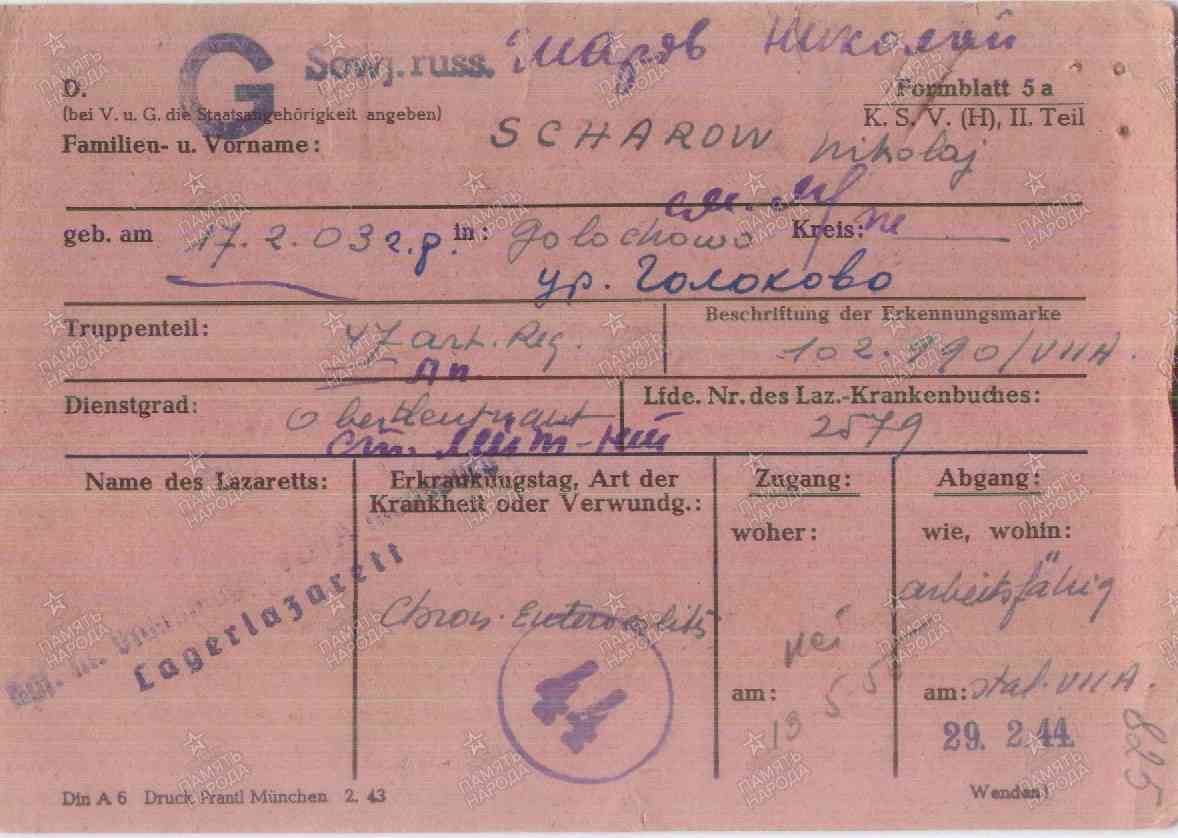 G Sowj. russ. Шаров Николай
D.
Formblatt 5 a
(bei V. u. G. die Staatsangehörigkeit angeben)
K. S. V. (H), II. Teil
Familien- u. Vorname: SCHAROW Nikolaj
geb. am 17. 2. 03 г.р. in: Golochowo Kreis:
ур. Голохово
Truppenteil: 47 art. Reg.
Ап.
Beschriftung der Erkennungsmarke
102.990/VIIA.
Dienstgrad: Oberleutnant
Lfde. Nr. des Laz.-Krankenbuches:
2579
Name des Lazaretts:
Erkrankungstag, Art der
Krankheit oder Verwundg.:
Zugang:
Abgang:
woher:
wie, wohin:
Lagerlazarett
Chron.
arbeitsfähig
am:
13
am: Stal. VII A.
29. 2. 44.
825
Din A 6 Druck Prantl München 2. 43
Wenden!
ПАМЯТЬ
НАРОДА